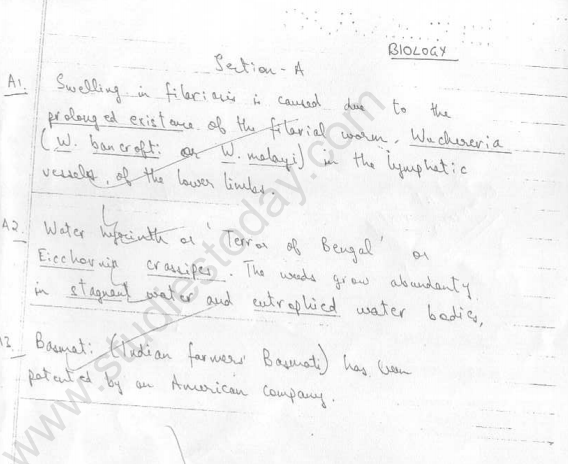 BIOLOGY
Section - A
A1. Swelling in filariasis is caused due to the
prolonged existance of the filarial worm. Wuchereria
(W. bancrofti or W. malayi) in the lymphatic
vessels of the lower limbs.
A2. Water hyacinth or 'Terror of Bengal' or
Eicchornia crassipes. The weeds grow abundantly
in stagnent water and eutrophied water bodies,
13. Basmati (Indian farmers' Basmati) has been
patented by an American company.
www.studiestoday.com